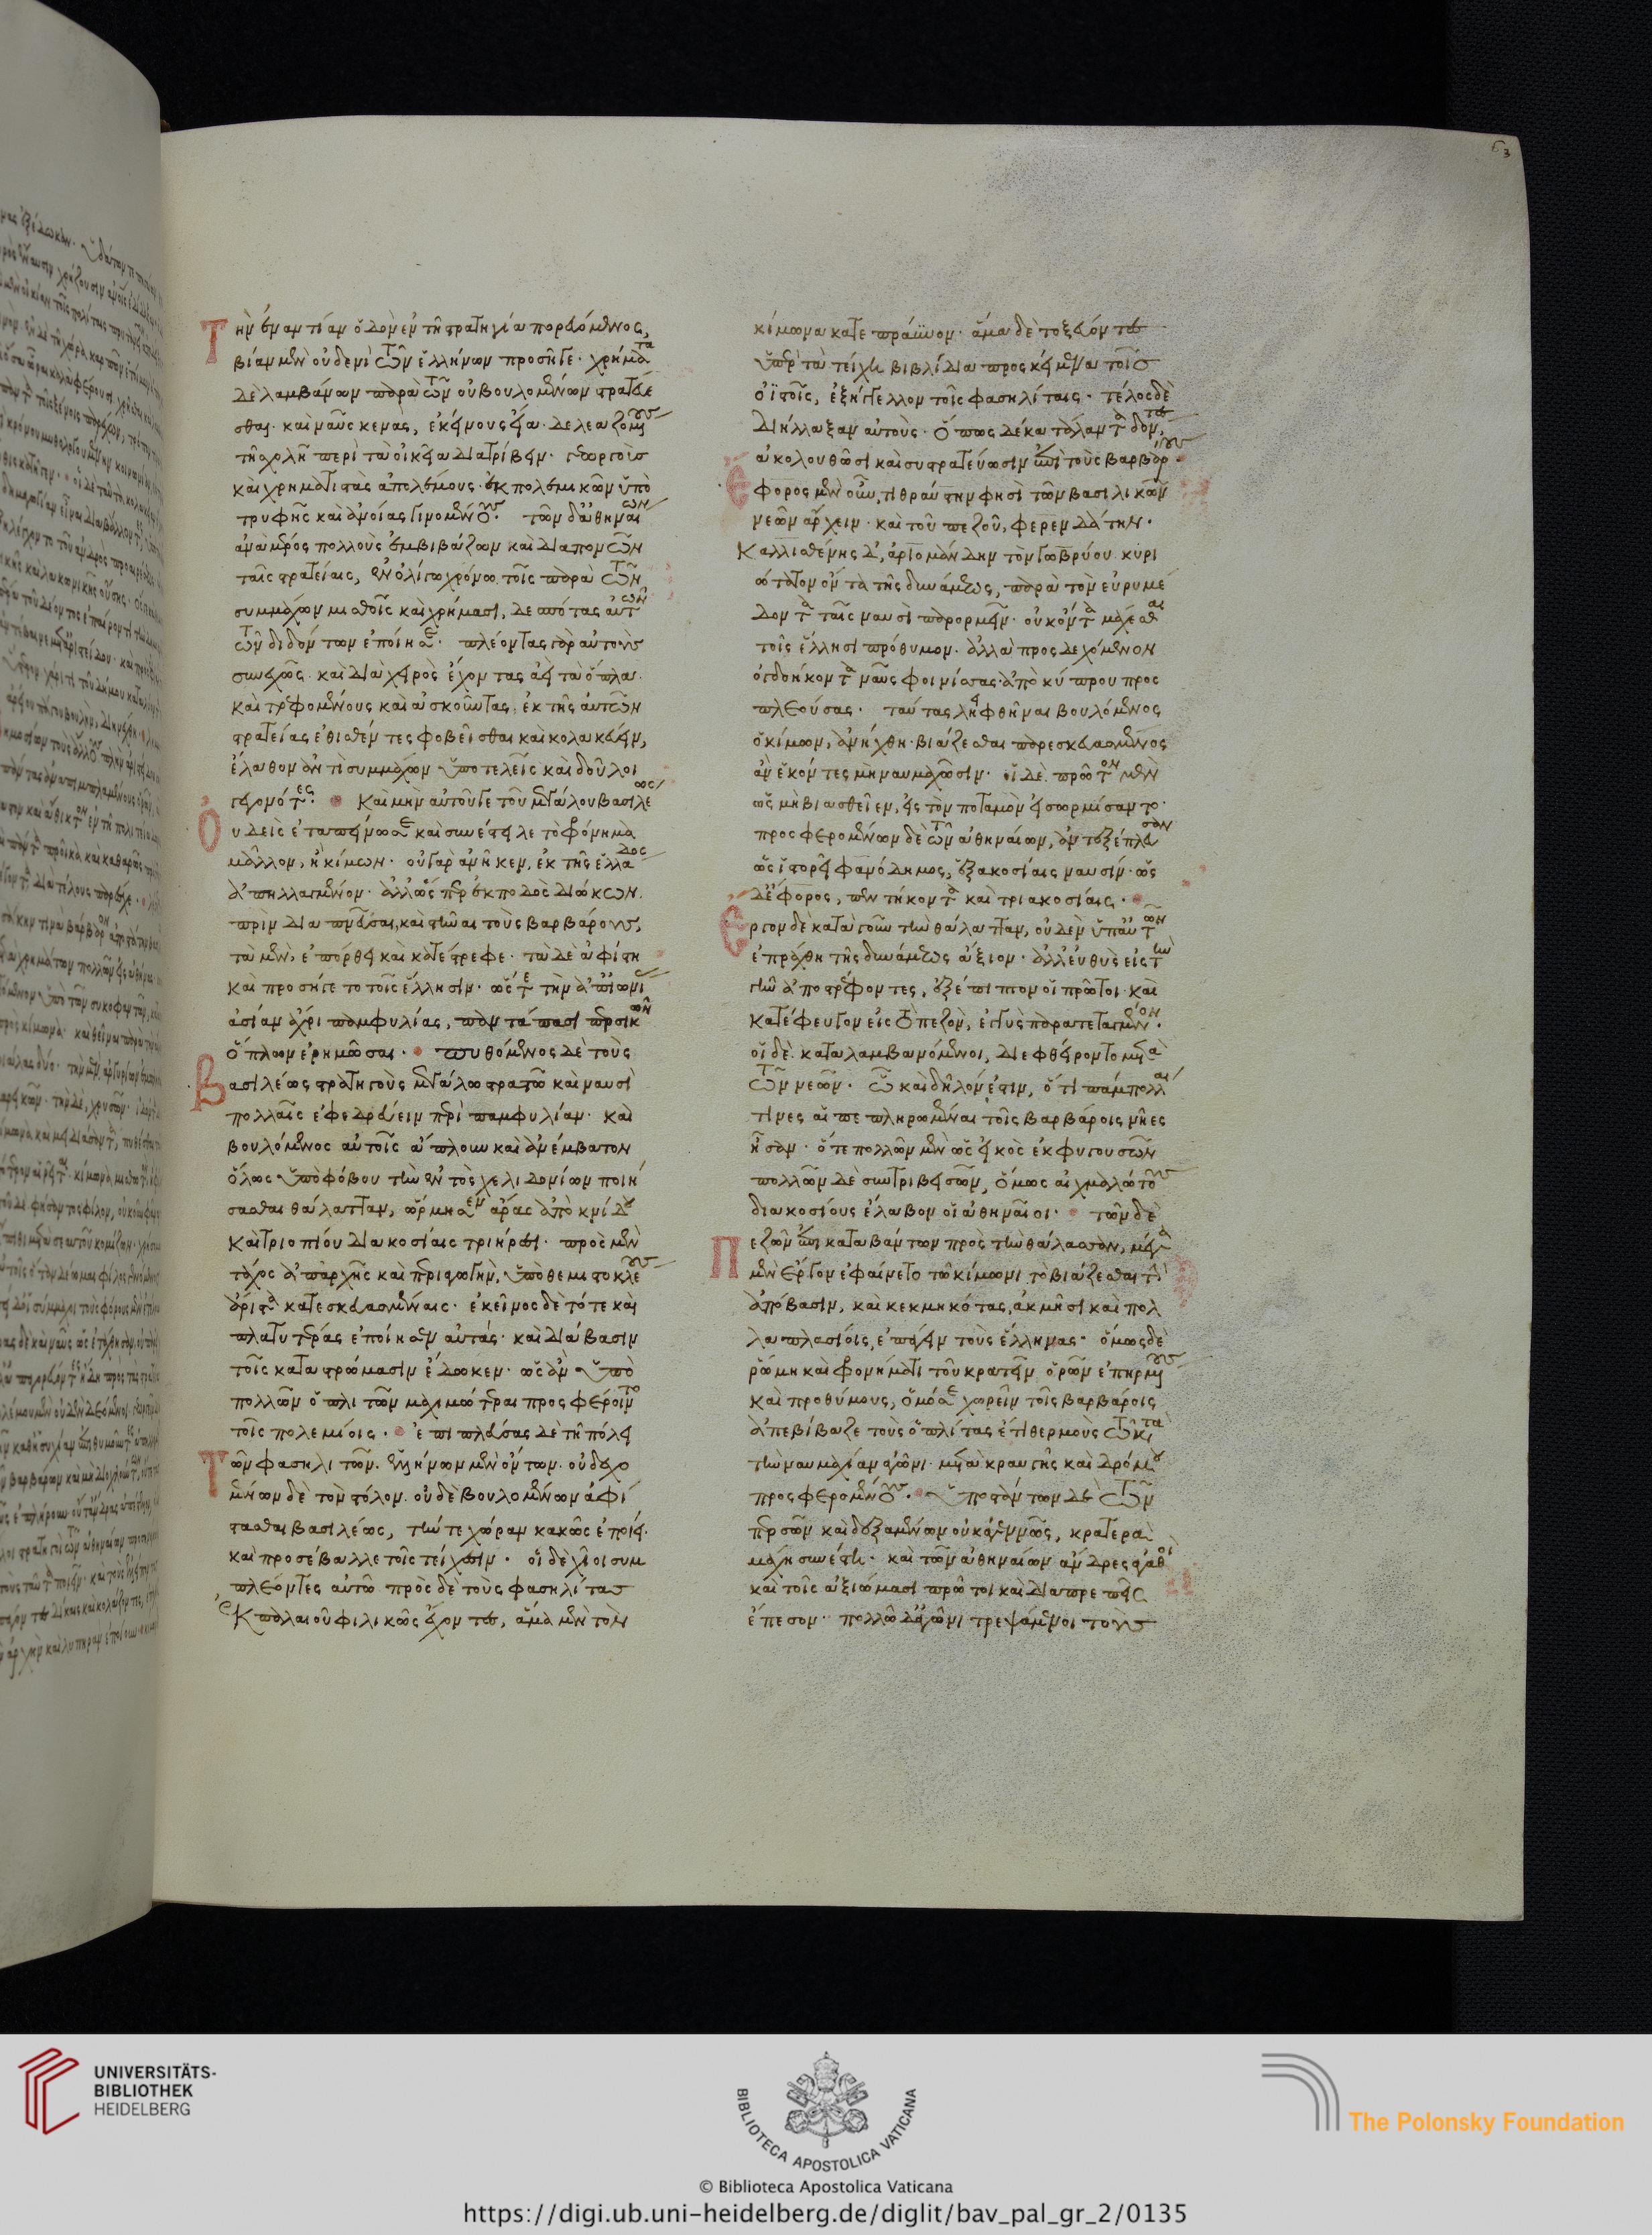 Τὴν ἐναντίαν ὁδὸν ἐν τῆ στρατηγία πορευόμενος,
βίαν μὲν οὐδενὶ τῶν ἑλλήνων προσῆγε· χρήματα
δὲ λαμβάνων παρὰ τῶν οὐ βουλομένων στρατεύε
σθαι· καὶ ναῦς κενας, ἐκείνους εἴα δελεαζομένους
τῆ σχολῆ περὶ τὰ οἰκεῖα διατρίβειν· γεωργοὺς
καὶ χρηματιστὰς ἀπολέμους· ἐκ πολεμικῶν ὑπὸ
τρυφῆς καὶ ἀνοίας γινομένους· τῶν δ' ἀθηναίων
ἀνὰ μέρος πολλοὺς ἐμβιβάζων καὶ διαπονῶν
ταῖς στρατείαις, ἐν ὀλίγω χρόνω τοῖς παρὰ τῶν
συμμάχων μισθοῖς καὶ χρήμασι, δεσπότας αὐτῶν
τῶν διδόντων ἐποίησε· πλέοντας γὰρ αὐτοὺς
συνεχῶς· καὶ διὰ χειρὸς ἔχοντας ἀεὶ τὰ ὅπλα·
καὶ τρεφομένους καὶ ἀσκοῦντας, ἐκ τῆς αὐτῶν
στρατείας ἐθισθέντες φοβεῖσθαι καὶ κολακεύειν,
ἔλαθον ἀντὶ συμμάχων ὑποτελεῖς καὶ δοῦλοι
γεγονότες· Καὶ μὴν αὐτοῦ γε τοῦ μεγάλου βασιλέως
Οὐδεὶς ἐταπείνωσε καὶ συνέστειλε τὸ φρόνημα
μᾶλλον, ἢ κίμων· οὐ γὰρ ἀνῆκεν, ἐκ τῆς ἑλλάδος
ἀπηλλαγμένον· ἀλλ' ὥσπερ ἐκ ποδὸς διώκων
πρὶν διαπνεῦσαι, καὶ στῆναι τοὺς βαρβάρους,
τὰ μὲν, ἐπόρθει καὶ κατέστρεφε· τὰ δὲ ἀφίστη
καὶ προσήγετο τοῖς ἕλλησιν· ὥστε τὴν ἀπ' ἰωνίας
ἀσίαν ἄχρι παμφυλίας, παντάπασι περσικῶν
ὅπλων ἐρημῶσαι· πυθόμενος δὲ τοὺς
Βασιλέως στρατηγοὺς μεγάλω στρατῶ καὶ ναυσὶ
πολλαῖς ἐφεδρεύειν περὶ παμφυλίαν· καὶ
βουλόμενος αὐτοῖς ἄπλουν καὶ ἀνέμβατον
ὅλως ὑπὸ φόβου τὴν ἐντὸς χελιδονίων ποιή
σασθαι θάλατταν, ὥρμησεν ἄρας ἀπὸ κνίδου
καὶ τριοπίου διακοσίαις τριήρεσι· πρὸς μὲν
τάχος ἀπ' ἀρχῆς καὶ περιαγωγὴν, ὑπὸ θεμιστοκλέους
ἄριστα κατεσκευασμέναις· ἐκεῖνος δὲ τότε καὶ
πλατυτέρας ἐποίησεν αὐτάς· καὶ διάβασιν
τοῖς καταστρώμασιν ἔδωκεν· ὡς ἂν ὑπὸ
πολλῶν ὁπλιτῶν μαχιμώτεραι προσφέροιντο
τοῖς πολεμίοις· ἐπιπλεύσας δὲ τῆ πόλει
Τῶν φασηλιτῶν· ἑλλήνων μὲν ὄντων· οὐ δεχο
μένων δὲ τὸν στόλον· οὐδὲ βουλομένων ἀφί
στασθαι βασιλέως, τήν τε χώραν κακῶς ἐποίει·
καὶ προσέβαλλε τοῖς τείχεσιν· οἱ δὲ χῖοι συμ
πλέοντες αὐτῶ πρὸς δὲ τοὺς φασηλίτας
ἐκ παλαιοῦ φιλικῶς ἔχοντες, ἅμα μὲν τὸν
κίμωνα κατεπράϋνον· ἅμα δὲ τοξεύοντες
ὑπὲρ τὰ τείχη βιβλίδια προσκείμενα τοῖς
ὀϊστοῖς, ἐξήγγελλον τοῖς φασηλίταις· τέλος δὲ
διήλλαξαν αὐτοὺς· ὅπως δέκα τάλαντα δόντες,
ἀκολουθῶσι καὶ συστρατεύωσιν ἐπὶ τοὺς βαρβάρους·
Ἔφορος μὲν οὖν, τιθραύστην φησὶ τῶν βασιλικῶν
νεῶν ἄρχειν· καὶ τοῦ πεζοῦ, φερενδάτην·
Καλλισθένης δ', ἀριομάνδην τὸν γωβρύου κυρι
ώτατον ὄντα τῆς δυνάμεως, παρὰ τὸν εὐρυμέ
δοντα ταῖς ναυσὶ παρορμεῖν· οὐκ ὄντα μάχεσθαι
τοῖς ἕλλησι πρόθυμον· ἀλλὰ προσδεχόμενον
ὀγδοήκοντα ναῦς φοινίσσας· ἀπὸ κύπρου προσ
πλεούσας· ταύτας ληφθῆναι βουλόμενος
ὁ κίμων, ἀνήχθη· βιάζεσθαι παρεσκευασμένος
ἂν ἑκόντες μὴ ναυμαχῶσιν· οἱ δὲ πρῶτον μὲν
ὡς μὴ βιασθεῖεν, εἰς τὸν ποταμὸν εἰσωρμίσαντο·
προσφερομένων δὲ τῶν ἀθηναίων, ἀντεξέπλευσαν
ὡς ἱστορεῖ φανόδημος, ἑξακοσίαις ναυσίν· ὡς
δ' ἔφορος, πεντήκοντα καὶ τριακοσίαις·
Ἔργον δὲ κατὰ γοῦν τὴν θάλατταν, οὐδὲν ὑπ' αὐτῶν
ἐπράχθη τῆς δυνάμεως ἄξιον· ἀλλ' εὐθὺς εἰς τὴν
γῆν ἀποστρέφοντες, ἐξέπιπτον οἱ πρῶτοι· καὶ
κατέφευγον εἰς τὸ πεζὸν, ἐγγὺς παρατεταγμένον·
οἱ δὲ καταλαμβανόμενοι, διεφθείροντο μετὰ
τῶν νεῶν· ὧ καὶ δῆλόν ἐστιν, ὅτι πάμπολλαί
τινες αἱ πεπληρωμέναι τοῖς βαρβάροις νῆες
ἦσαν· ὅτε πολλῶν μὲν ὡς εἰκὸς ἐκφυγουσῶν
πολλῶν δὲ συντριβεισῶν, ὅμως αἰχμαλώτους
διακοσίους ἔλαβον οἱ ἀθηναῖοι· τῶν δὲ
Πεζῶν ἐπικαταβάντων πρὸς τὴν θάλασσαν, μέγα
μὲν ἔργον ἐφαίνετο τῶ κίμωνι τὸ βιάζεσθαι τὴν
ἀπόβασιν, καὶ κεκμηκότας, ἀκμῆσι καὶ πολ
λαπλασίοις, ἐπάγειν τοὺς ἕλληνας· ὅμως δὲ
ῥώμη καὶ φρονήματι τοῦ κρατεῖν ὁρῶν ἐπηρμένους
καὶ προθύμους, ὁμόσε χωρεῖν τοῖς βαρβάροις
ἀπεβίβαζε τοὺς ὁπλίτας ἔτι θερμοὺς τῶ κατὰ
τὴν ναυμαχίαν ἀγῶνι· μετὰ κραυγῆς καὶ δρόμου
προσφερομένους· ὑποστάντων δὲ τῶν
περσῶν καὶ δεξαμένων οὐκ ἀγεννῶς, κρατερὰ
μάχη συνέστη· καὶ τῶν ἀθηναίων ἄνδρες ἀγαθοὶ
καὶ τοῖς ἀξιώμασι πρῶτοι καὶ διαπρεπεῖς
ἔπεσον· πολλῶ δ' ἀγῶνι τρεψάμενοι τοὺς
63
UNIVERSITÄTS-
BIBLIOTHEK
HEIDELBERG
BIBLIOTECA APOSTOLICA VATICANA
The Polonsky Foundation
© Biblioteca Apostolica Vaticana
https://digi.ub.uni-heidelberg.de/diglit/bav_pal_gr_2/0135